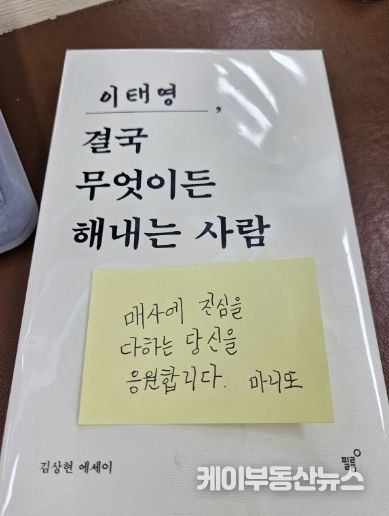 이태영,
결국
무엇이든
해내는 사람
매사에 진심을
다하는 당신을
응원합니다. 마니또
김상현 에세이
필름
케이부동산뉴스